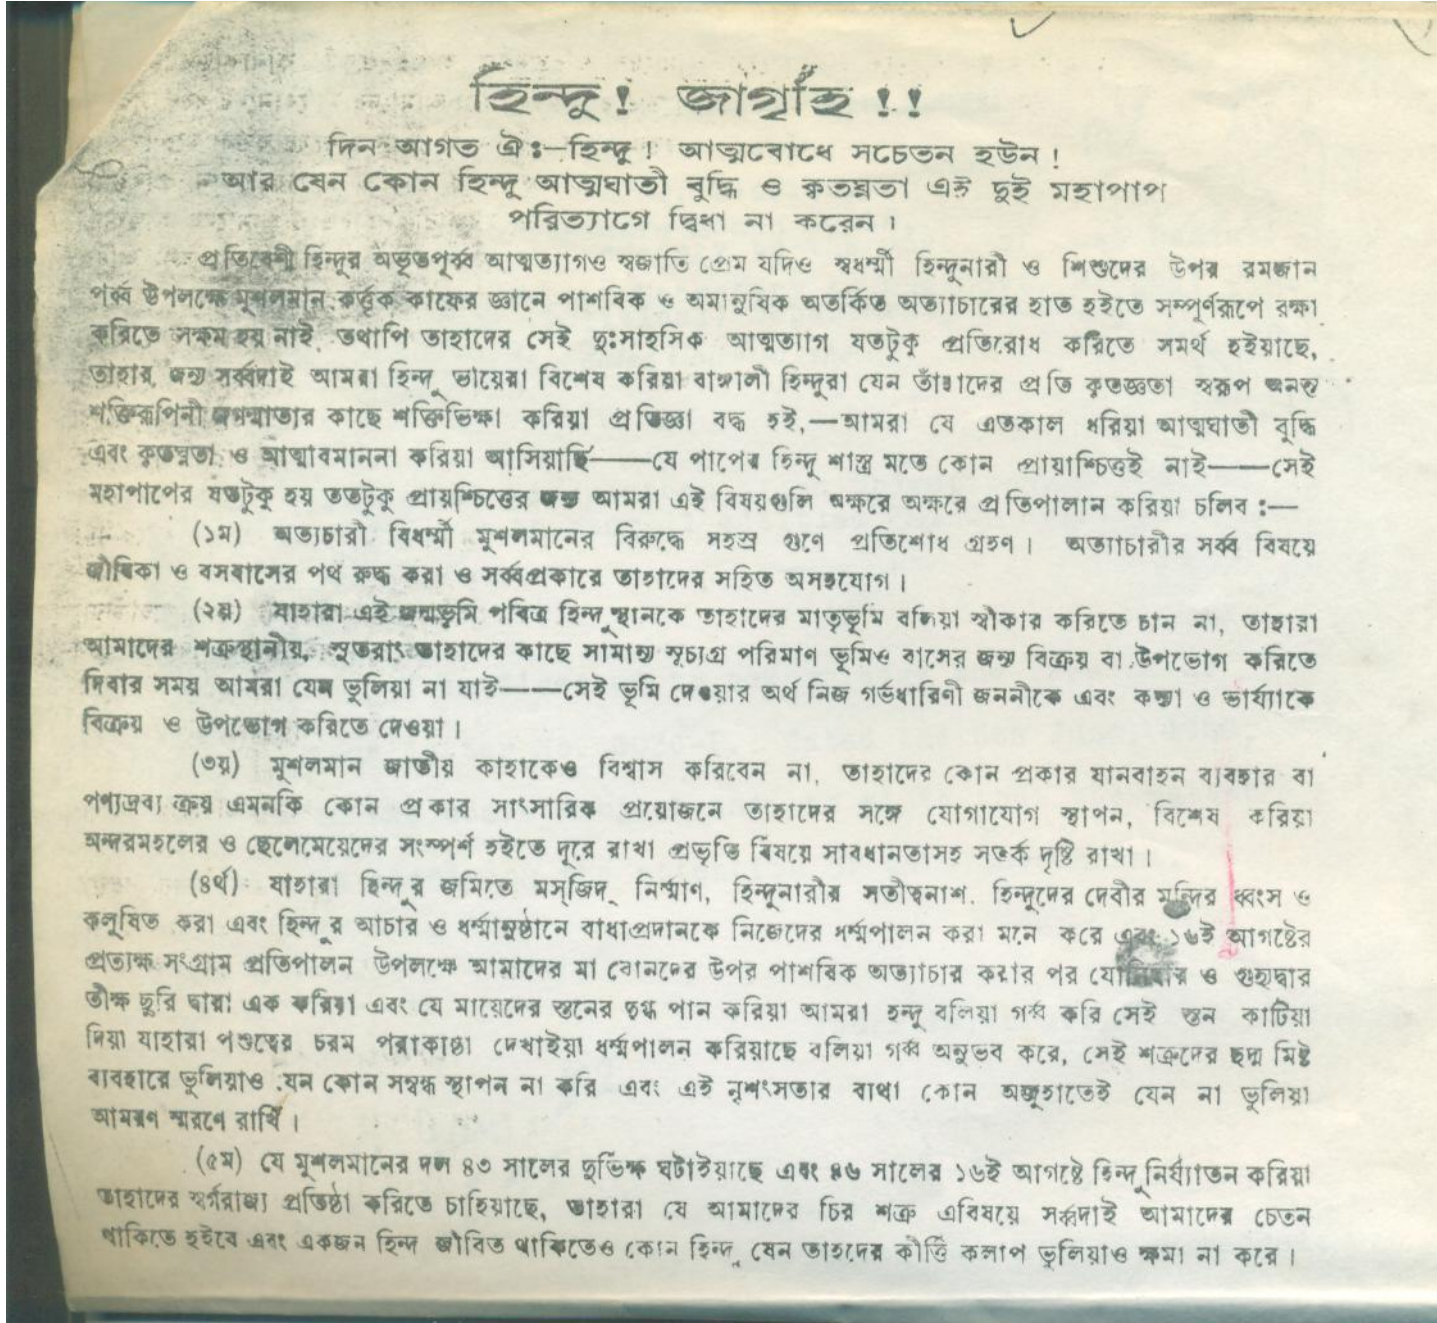 হিন্দু! জাগৃহি!!
দিন আগত ঐঃ—হিন্দু! আত্মবোধে সচেতন হউন!
আর যেন কোন হিন্দু আত্মঘাতী বুদ্ধি ও কৃতঘ্নতা এই দুই মহাপাপ
পরিত্যাগে দ্বিধা না করেন।
প্রতিবেশী হিন্দুর অভূতপূর্ব্ব আত্মত্যাগও স্বজাতি প্রেম যদিও স্বধর্ম্মী হিন্দুনারী ও শিশুদের উপর রমজান
পর্ব্ব উপলক্ষে মুশলমান কর্ত্তৃক কাফের জ্ঞানে পাশবিক ও অমানুষিক অতর্কিত অত্যাচারের হাত হইতে সম্পূর্ণরূপে রক্ষা
করিতে সক্ষম হয় নাই, তথাপি তাহাদের সেই দুঃসাহসিক আত্মত্যাগ যতটুকু প্রতিরোধ করিতে সমর্থ হইয়াছে,
তাহার জন্য সর্ব্বদাই আমরা হিন্দু ভায়েরা বিশেষ করিয়া বাঙ্গালী হিন্দুরা যেন তাঁহাদের প্রতি কৃতজ্ঞতা স্বরূপ অনন্ত
শক্তিরূপিনী জগন্মাতার কাছে শক্তিভিক্ষা করিয়া প্রতিজ্ঞা বদ্ধ হই,—আমরা যে এতকাল ধরিয়া আত্মঘাতী বুদ্ধি
এবং কৃতঘ্নতা ও আত্মাবমাননা করিয়া আসিয়াছি——যে পাপের হিন্দু শাস্ত্র মতে কোন প্রায়াশ্চিত্তই নাই——সেই
মহাপাপের যতটুকু হয় ততটুকু প্রায়শ্চিত্তের জন্য আমরা এই বিষয়গুলি অক্ষরে অক্ষরে প্রতিপালান করিয়া চলিব :—
(১ম) অত্যচারী বিধর্ম্মী মুশলমানের বিরুদ্ধে সহস্র গুণে প্রতিশোধ গ্রহণ। অত্যাচারীর সর্ব্ব বিষয়ে
জীবিকা ও বসবাসের পথ রুদ্ধ করা ও সর্ব্বপ্রকারে তাহাদের সহিত অসহযোগ।
(২য়) যাহারা এই জন্মভূমি পবিত্র হিন্দুস্থানকে তাহাদের মাতৃভূমি বলিয়া স্বীকার করিতে চান না, তাহারা
আমাদের শত্রুস্থানীয়, সুতরাং তাহাদের কাছে সামান্য সূচ্যগ্র পরিমাণ ভূমিও বাসের জন্য বিক্রয় বা উপভোগ করিতে
দিবার সময় আমরা যেন ভুলিয়া না যাই——সেই ভূমি দেওয়ার অর্থ নিজ গর্ভধারিণী জননীকে এবং কন্যা ও ভার্য্যাকে
বিক্রয় ও উপভোগ করিতে দেওয়া।
(৩য়) মুশলমান জাতীয় কাহাকেও বিশ্বাস করিবেন না, তাহাদের কোন প্রকার যানবাহন ব্যবহার বা
পণ্যদ্রব্য ক্রয় এমনকি কোন প্রকার সাংসারিক প্রয়োজনে তাহাদের সঙ্গে যোগাযোগ স্থাপন, বিশেষ করিয়া
অন্দরমহলের ও ছেলেমেয়েদের সংস্পর্শ হইতে দূরে রাখা প্রভৃতি বিষয়ে সাবধানতাসহ সতর্ক দৃষ্টি রাখা।
(৪র্থ) যাহারা হিন্দুর জমিতে মস্‌জিদ্ নির্ম্মাণ, হিন্দুনারীর সতীত্বনাশ, হিন্দুদের দেবীর মন্দির ধ্বংস ও
কলুষিত করা এবং হিন্দুর আচার ও ধর্ম্মানুষ্ঠানে বাধাপ্রদানকে নিজেদের ধর্ম্মপালন করা মনে করে এবং ১৬ই আগষ্টের
প্রত্যক্ষ সংগ্রাম প্রতিপালন উপলক্ষে আমাদের মা বোনদের উপর পাশবিক অত্যাচার করার পর যোনিদ্বার ও গুহ্যদ্বার
তীক্ষ ছুরি দ্বারা এক করিয়া এবং যে মায়েদের স্তনের দুগ্ধ পান করিয়া আমরা হন্দু বলিয়া গর্ব্ব করি সেই স্তন কাটিয়া
দিয়া যাহারা পশুত্বের চরম পরাকাষ্ঠা দেখাইয়া ধর্ম্মপালন করিয়াছে বলিয়া গর্ব্ব অনুভব করে, সেই শত্রুদের ছদ্ম মিষ্ট
ব্যবহারে ভুলিয়াও যেন কোন সম্বন্ধ স্থাপন না করি এবং এই নৃশংসতার ব্যথা কোন অজুহাতেই যেন না ভুলিয়া
আমরণ স্মরণে রাখি।
(৫ম) যে মুশলমানের দল ৪৩ সালের দুর্ভিক্ষ ঘটাইয়াছে এবং ৪৬ সালের ১৬ই আগষ্টে হিন্দু নির্য্যাতন করিয়া
তাহাদের স্বর্গরাজ্য প্রতিষ্ঠা করিতে চাহিয়াছে, তাহারা যে আমাদের চির শত্রু এবিষয়ে সর্ব্বদাই আমাদের চেতন
থাকিতে হইবে এবং একজন হিন্দু জীবিত থাকিতেও কোন হিন্দু যেন তাহদের কীর্ত্তি কলাপ ভুলিয়াও ক্ষমা না করে।